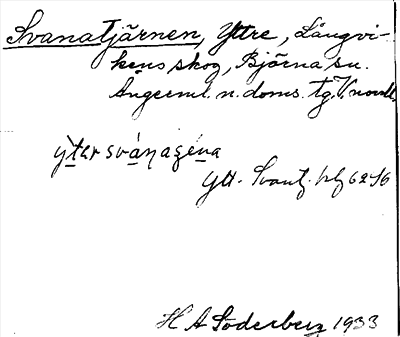 Svanatjärnen, Yttre, Långvi-
kens skog, Björna sn.
Ångerml. n. doms. tg. V. norrl.
ytersvánaʒéna
Ytt. Svantj. blf 62 S6
H A Söderberg 1933